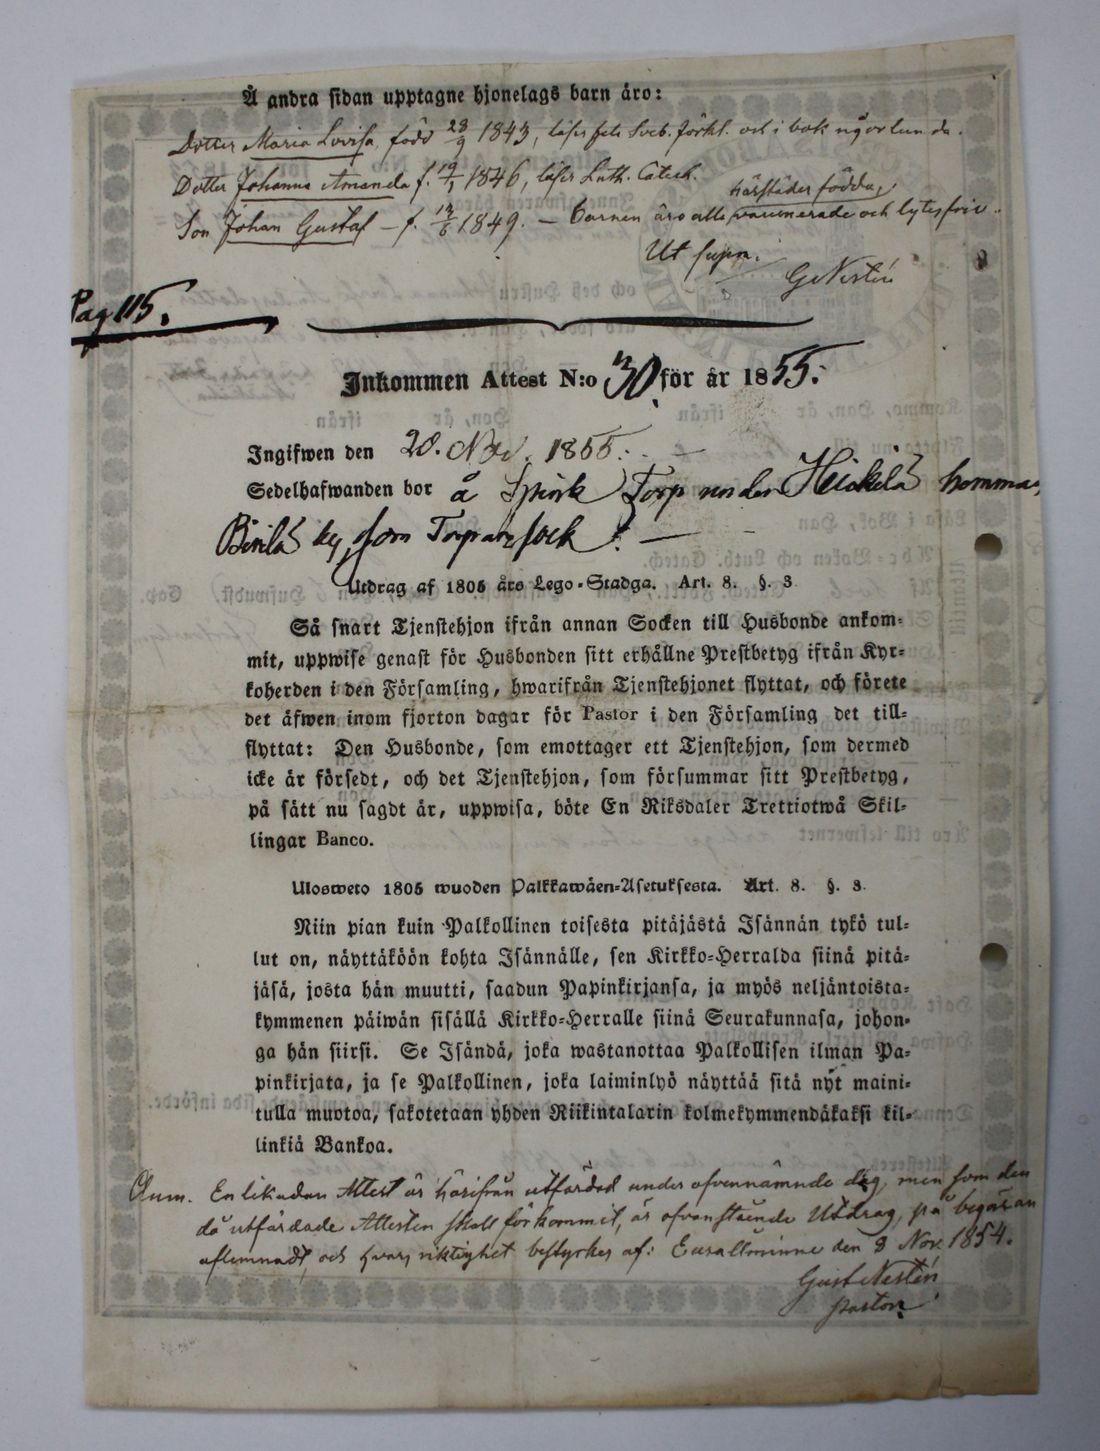 Å andra sidan upptagne hjonelags barn äro:
Dotter Maria Lovisa, född 28/9 1843, läser fete Sveb. förkl. och i bok någorlunda.
Dotter Johanna Amanda f. 19/1 1846, läser Luth. Catech.
härstädes födda,
Son Johan Gustaf – f. 13/6 1849. – barnen äro alla vaccinerade och lytesfrie.
Ut supra.
G Nestén
Pag 115.
Inkommen Attest N:o 30 för år 1855.
Ingifwen den 20. Nov. 1855.
Sedelhafwanden bor å Torp under Heikilä hemman,
by som Torpare
Utdrag af 1805 års Lego-Stadga. Art. 8. §. 3
Så snart Tjenstehjon ifrån annan Socken till Husbonde ankom-
mit, uppwise genast för Husbonden sitt erhållne Prestbetyg ifrån Kyr-
koherden i den Församling, hwarifrån Tjenstehjonet flyttat, och förete
det äfwen inom fjorton dagar för Pastor i den Församling det till-
flyttat: Den Husbonde, som emottager ett Tjenstehjon, som dermed
icke är försedt, och det Tjenstehjon, som försummar sitt Prestbetyg,
på sätt nu sagdt är, uppwisa, böte En Riksdaler Trettiotwå Skil-
lingar Banco.
Ulosweto 1805 wuoden Palkkawäen-Asetuksesta. Art. 8. §. 3.
Niin pian kuin Palkollinen toisesta pitäjästä Isännän tykö tul-
lut on, näyttäköön kohta Isännälle, sen Kirkko-Herralda siinä pitä-
jäsä, josta hän muutti, saadun Papinkirjansa, ja myös neljäntoista-
kymmenen päiwän sisällä Kirkko-Herralle siinä Seurakunnasa, johon-
ga hän siirsi. Se Isändä, joka wastanottaa Palkollisen ilman Pa-
pinkirjata, ja se Palkollinen, joka laiminlyö näyttää sitä nyt maini-
tulla muotoa, sakotetaan yhden Riikintalarin kolmekymmendäkaksi kil-
linkiä Bankoa.
Anm. En likadan Attest är härifrån utfärdad under ofvannämnde dag, men som den
då utfärdade Attesten skall förkommit, är ofvanstående Utdrag, på begäran
aflemnadt, och hvars riktighet bestyrkes af: Euraåminne den 8 Nov. 1854.
Gust Nestén
pastor.